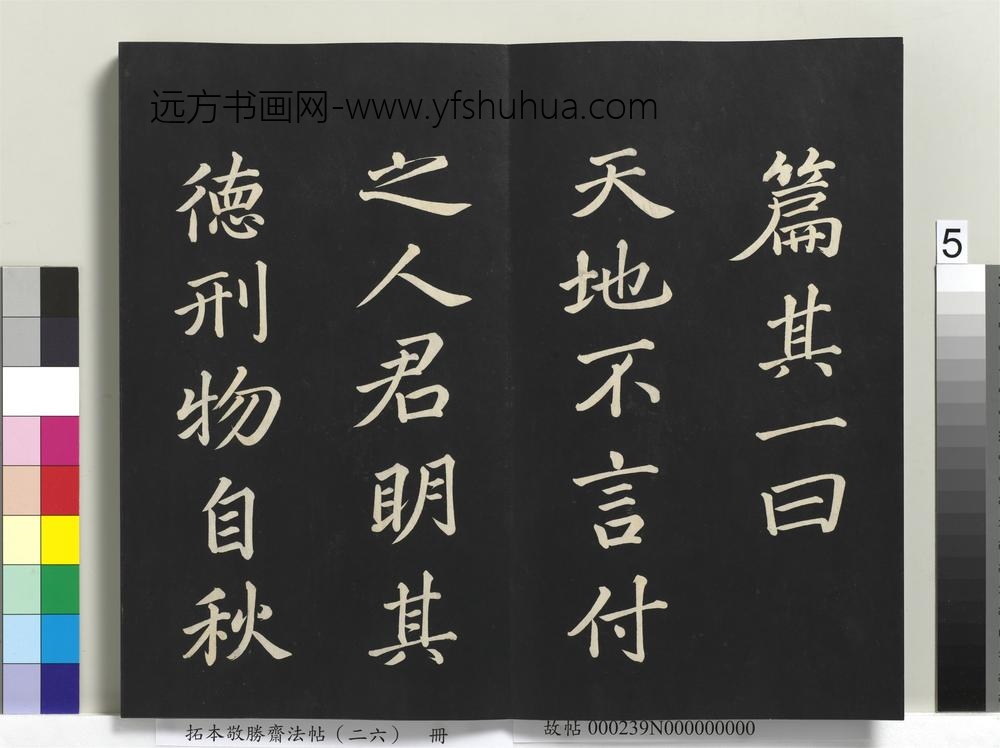 远方书画网-www.yfshuhua.com
篇其一曰
天地不言付
之人君明其
德刑物自秋
5
拓本敬勝齋法帖（二六） 冊
故帖 000239N000000000